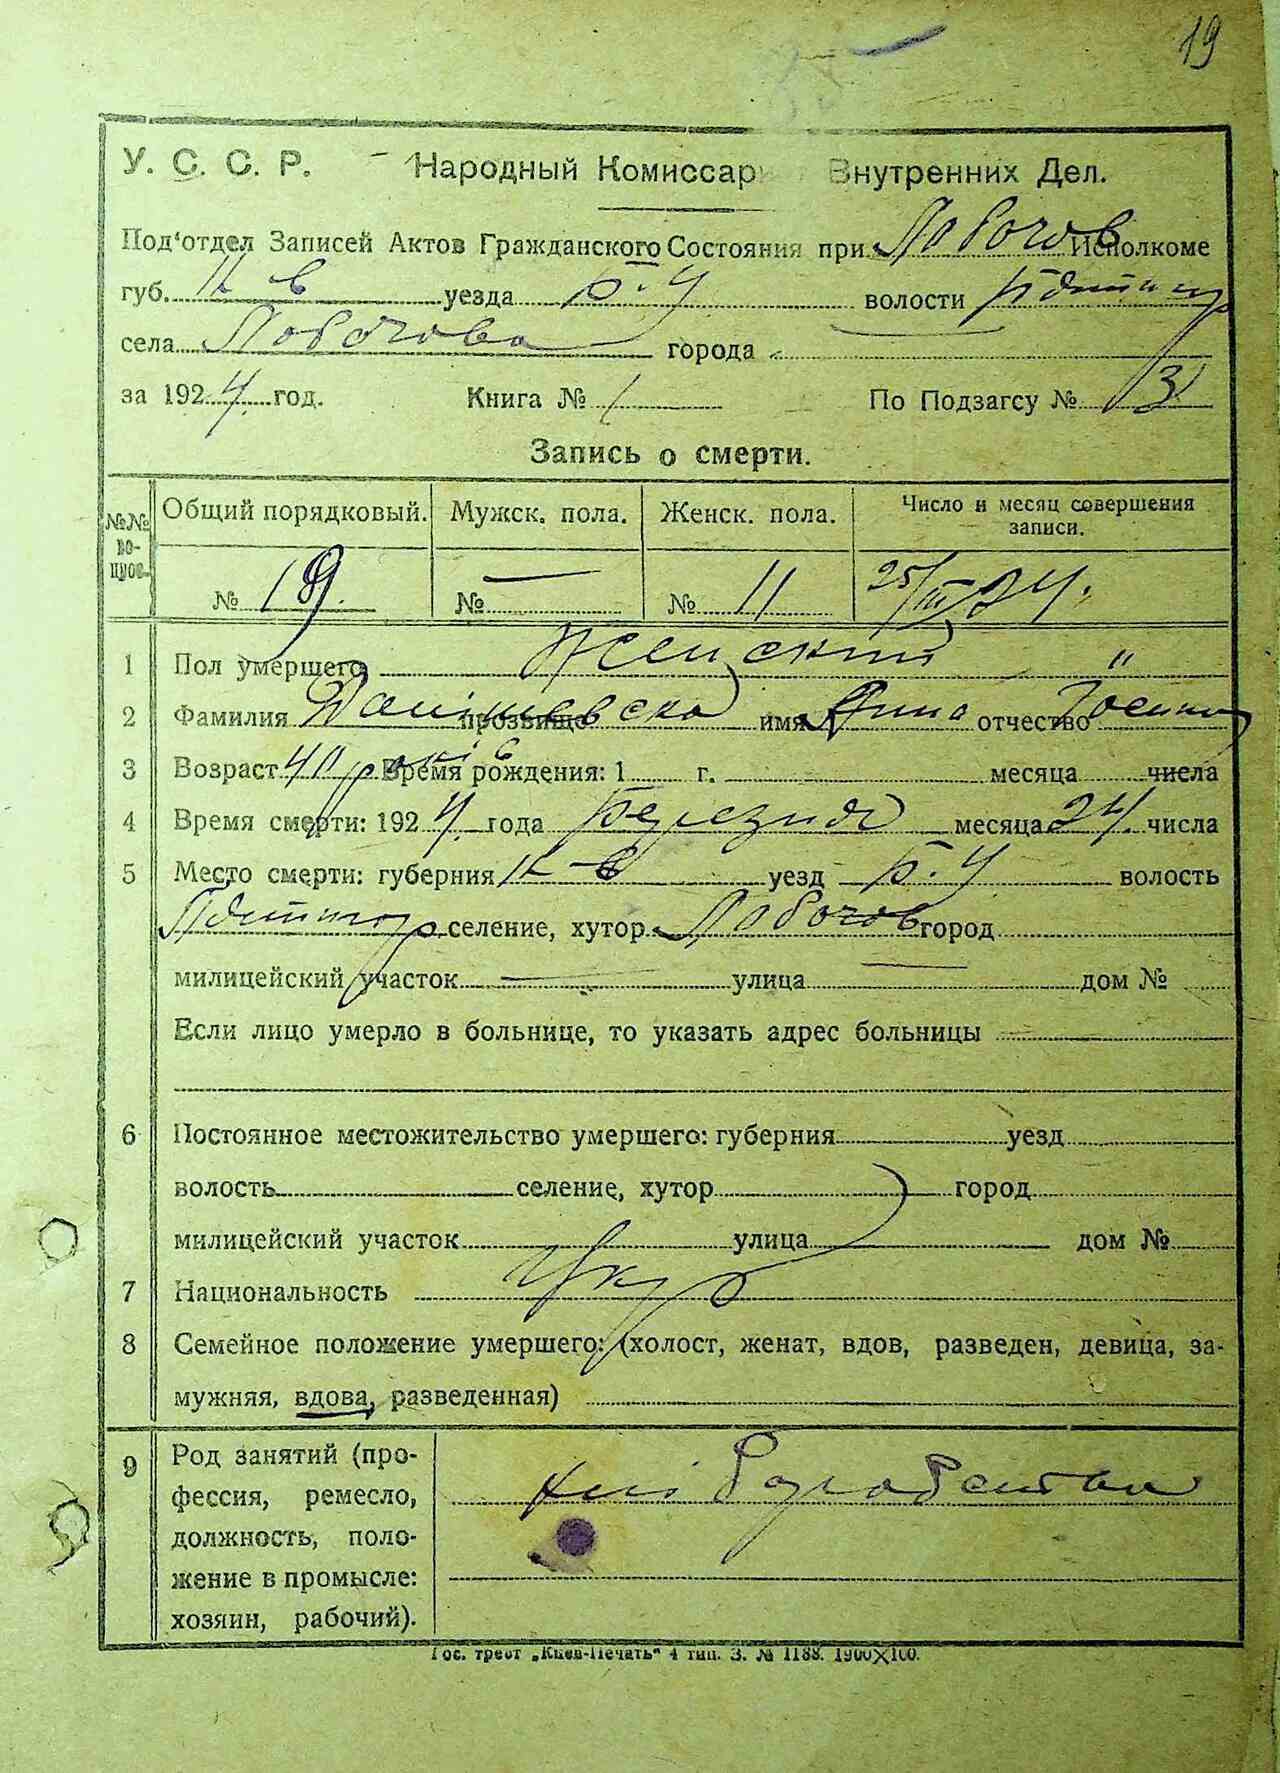 19
У. С. С. Р. Народный Комиссар Внутренних Дел.
Под'отдел Записей Актов Гражданского Состояния при Лобачов Исполкоме
губ. К-в уезда Б-Ц волости
села Лобачова города
за 1924 год. Книга № 1 По Подзагсу № 3
Запись о смерти.
№№ по- Общий порядковый. Мужск. пола. Женск. пола. Число и месяц совершения записи.
№ 19. № — № 11 25/III 24.
1 Пол умершего Женский "
2 Фамилия прозвище имя Анна отчество
3 Возраст 40 років Время рождения: 1 г. месяца числа
4 Время смерти: 1924 года Березня месяца 24. числа
5 Место смерти: губерния К-в уезд Б-Ц волость
селение, хутор Лобачов город
милицейский участок — улица — дом №
Если лицо умерло в больнице, то указать адрес больницы
6 Постоянное местожительство умершего: губерния уезд
волость селение, хутор город
милицейский участок улица дом №
7 Национальность Укр
8 Семейное положение умершего: (холост, женат, вдов, разведен, девица, за-
мужняя, вдова, разведенная)
9 Род занятий (про-
фессия, ремесло,
должность, поло-
жение в промысле:
хозяин, рабочий).
Гос. трест „Киев-Печать" 4 тип. З. № 1188. 1900X100.